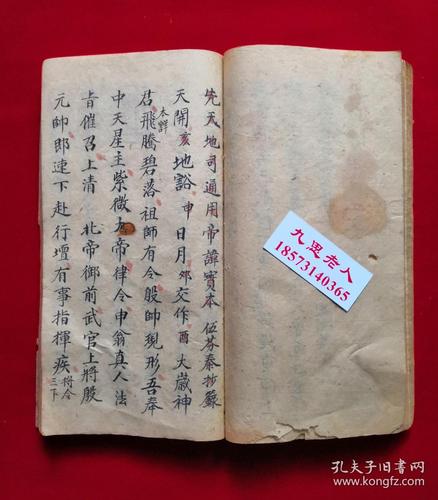 先天地司通用帝諱寳本 伍芬泰抄籙
天開亥地谿申日月卯交作酉大歲神
君本諱飛騰碧落祖師有令殷帥現形吾奉
中天星主紫微大帝律令申翁真人法
旨催召上清 北帝御前武官上將殷
元帥即速下赴行壇有事指揮疾 將令三下
九思老人
18573140365
孔夫子旧书网
www.kongfz.com